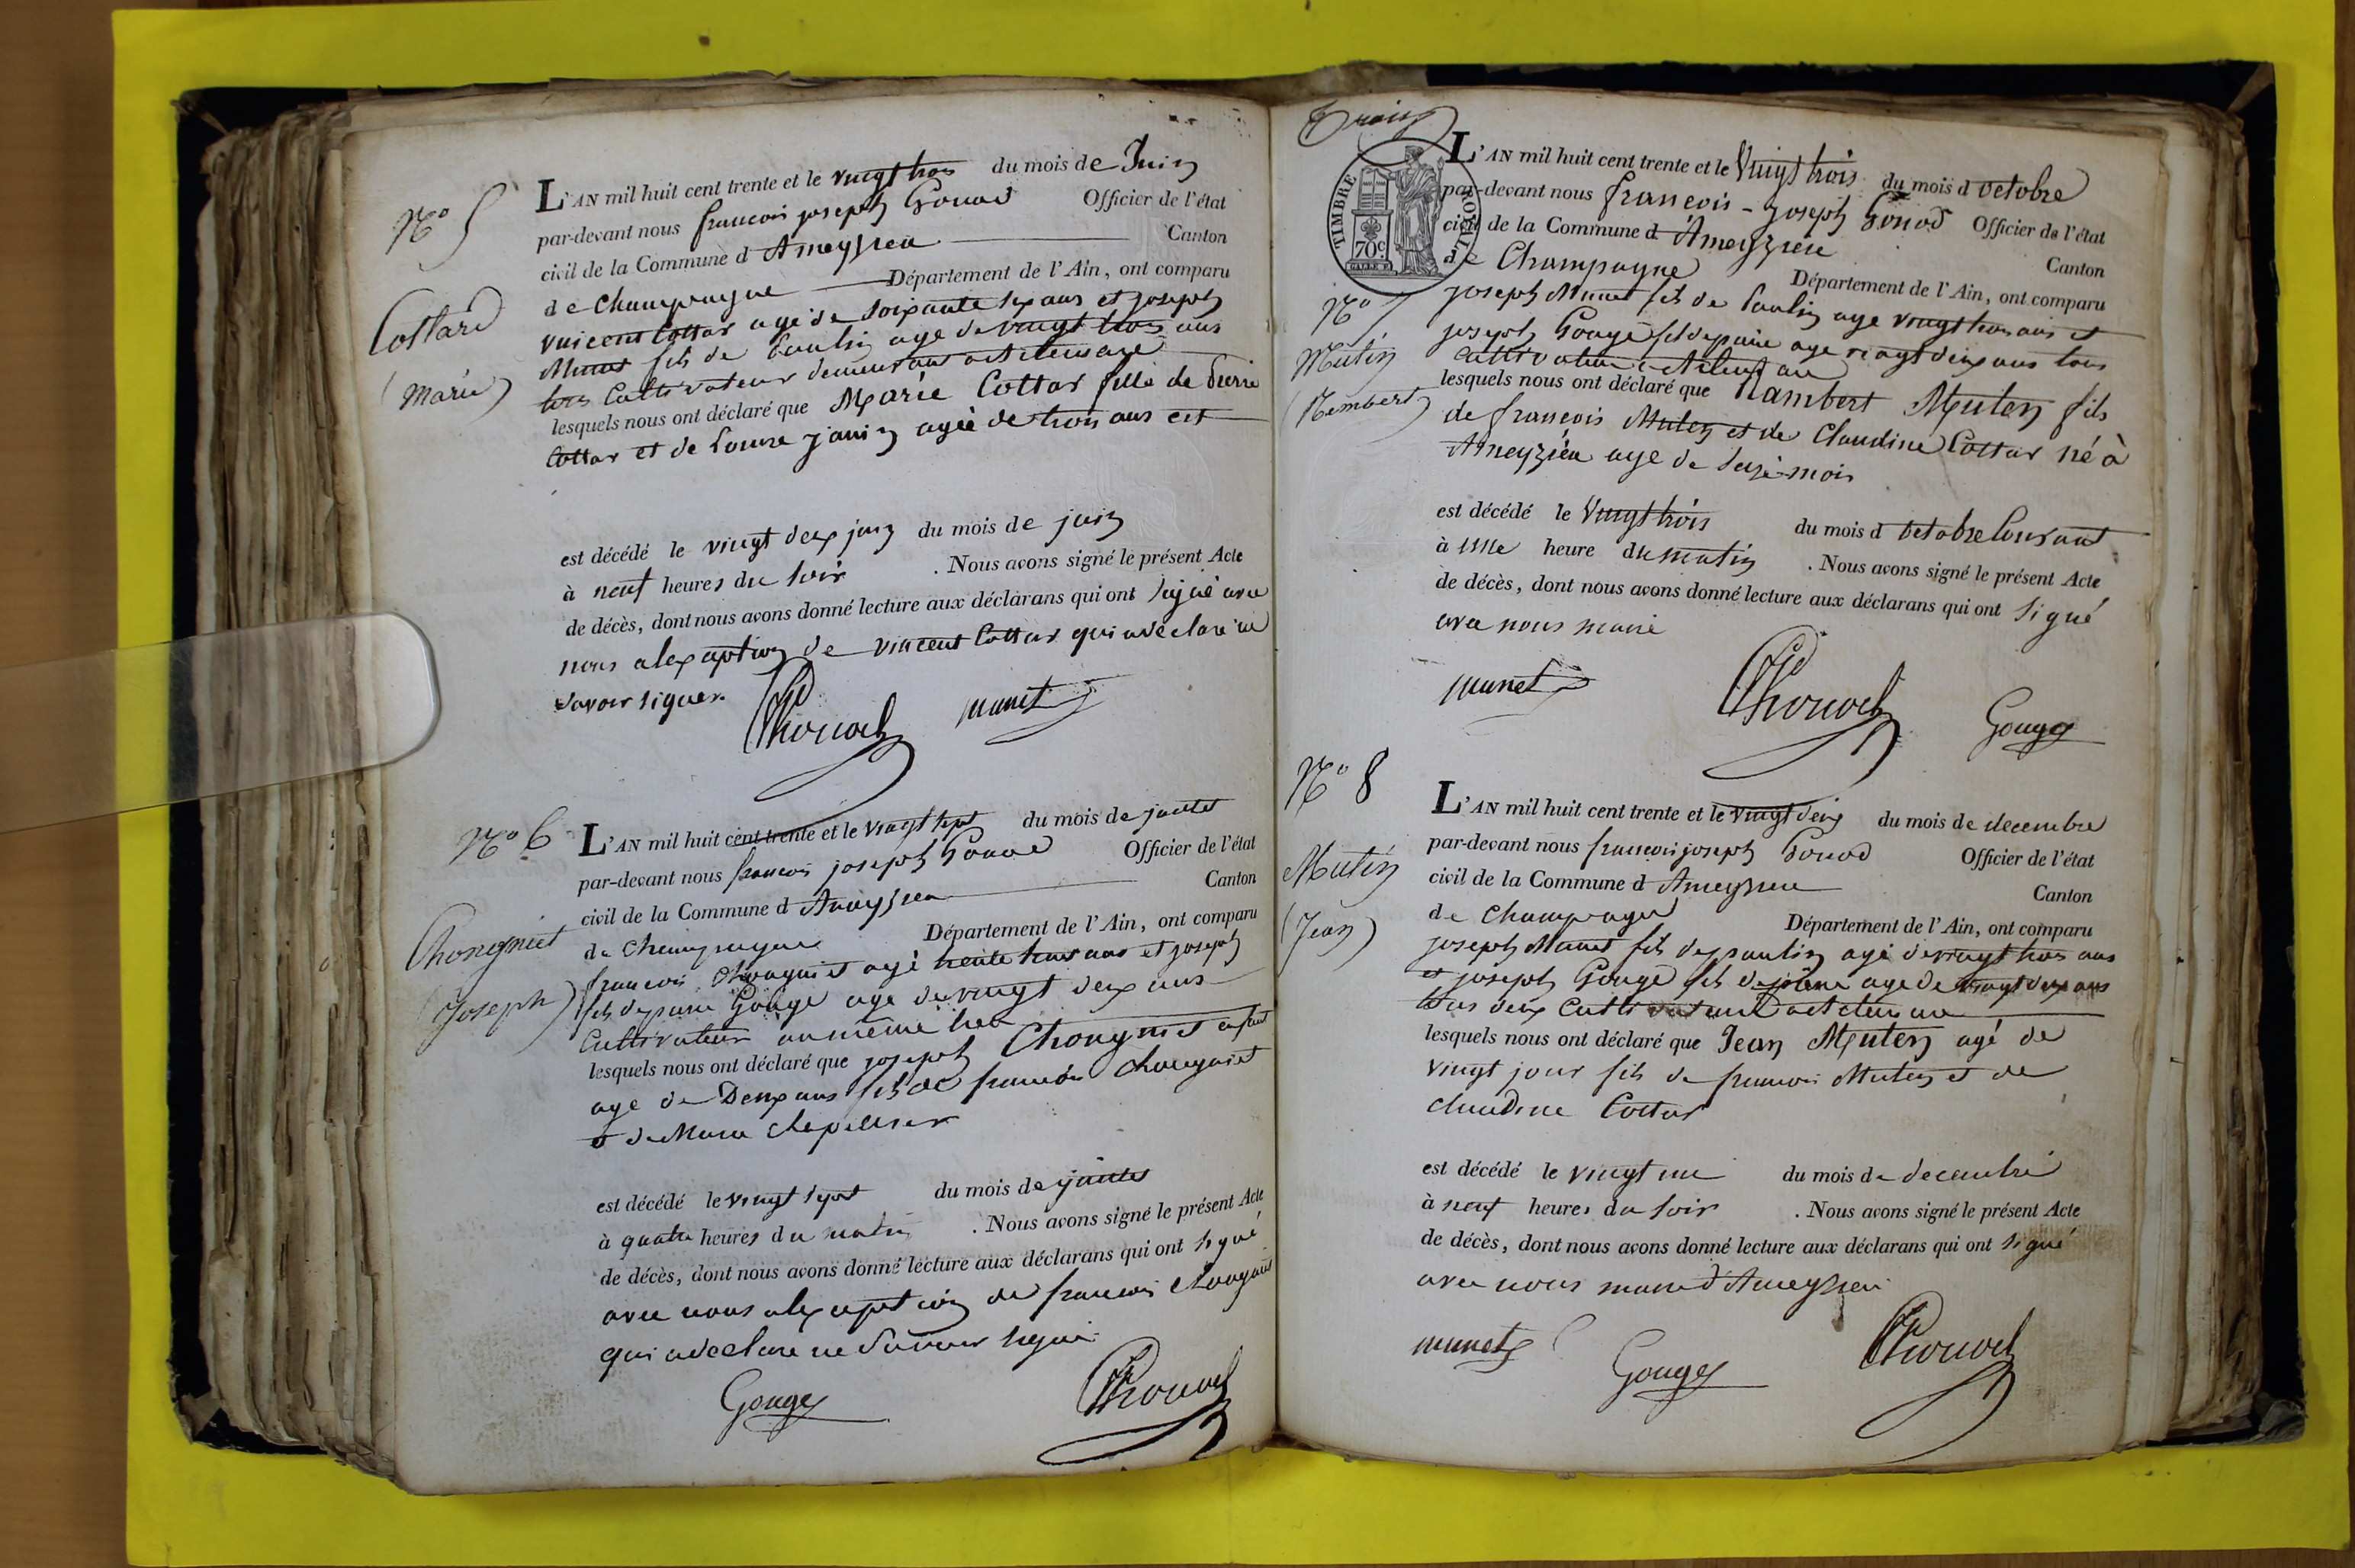 N.o 5
Cottard
(Marie)
L'AN mil huit cent trente et le vingt trois du mois de Juin
par-devant nous francois joseph Gonod Officier de l'état
civil de la Commune d Ameyzieu Canton
de Champagne Département de l'Ain, ont comparu
vincent Cottar agé de soixante six ans et joseph
Munet fils de Paulin age de vingt trois ans
tous Cultivateur demeurans
lesquels nous ont déclaré que Marie Cottar fille de Pierre
Cottar et de Louise janin agée de trois ans est
est décédé le vingt deux juin du mois de juin
à neuf heures du soir . Nous avons signé le présent Acte
de décès, dont nous avons donné lecture aux déclarans qui ont signé avec
nous a lexception de vincent Cottar qui a déclaré ne
savoir signer.
munet
N.o 6
Chongniet
(Joseph)
L'AN mil huit cent trente et le vingt sept du mois de juillet
par-devant nous francois joseph Gonod Officier de l'état
civil de la Commune d Ameyzieu Canton
de Champagne Département de l'Ain, ont comparu
francois Chongniet agé trente trois ans et joseph
fils de pierre Gouge age de vingt deux ans
Cultivateur au même lieu
lesquels nous ont déclaré que joseph Chongniet enfant
age de Deux ans fils de francois Chongniet
et de Marie chapellier
est décédé le vingt sept du mois de juillet
à quatre heures du matin . Nous avons signé le présent Acte
de décès, dont nous avons donné lecture aux déclarans qui ont signé
avec nous a lexception de francois Chongniet
qui a déclaré ne savoir signé
Gouge
TIMBRE ROYAL
70c
N.o 7
Mutin
(Rembert)
L'AN mil huit cent trente et le Vingt trois du mois d octobre
par-devant nous francois - joseph Gonod Officier de l'état
civil de la Commune d Ameyzieu Canton
de Champagne Département de l'Ain, ont comparu
joseph Munet fils de Paulin age vingt trois ans et
joseph Gougé fils de pierre age vingt deux ans tous
Cultivateur
lesquels nous ont déclaré que Rambert Muten fils
de francois Muten et de Claudine Cottar né à
Ameyzieu age de seize mois
est décédé le Vingt trois du mois d octobre Courant
à une heure du matin . Nous avons signé le présent Acte
de décès, dont nous avons donné lecture aux déclarans qui ont signé
avec nous maire
munet
Gouge
N.o 8
Mutin
(Jean)
L'AN mil huit cent trente et le vingt deux du mois de decembre
par-devant nous francois joseph Gonod Officier de l'état
civil de la Commune d Ameyzieu Canton
de Champagne Département de l'Ain, ont comparu
joseph Munet fils de paulin agé de vingt trois ans
et joseph Gouge fils de pierre age de vingt deux ans
tous deux Cultivateurs
lesquels nous ont déclaré que Jean Muten agé de
vingt jour fils de francois Muten et de
claudine Cottar
est décédé le vingt un du mois de decembre
à neuf heures du soir . Nous avons signé le présent Acte
de décès, dont nous avons donné lecture aux déclarans qui ont signé
avec nous maire d'Ameyzieu
munet
Gouge